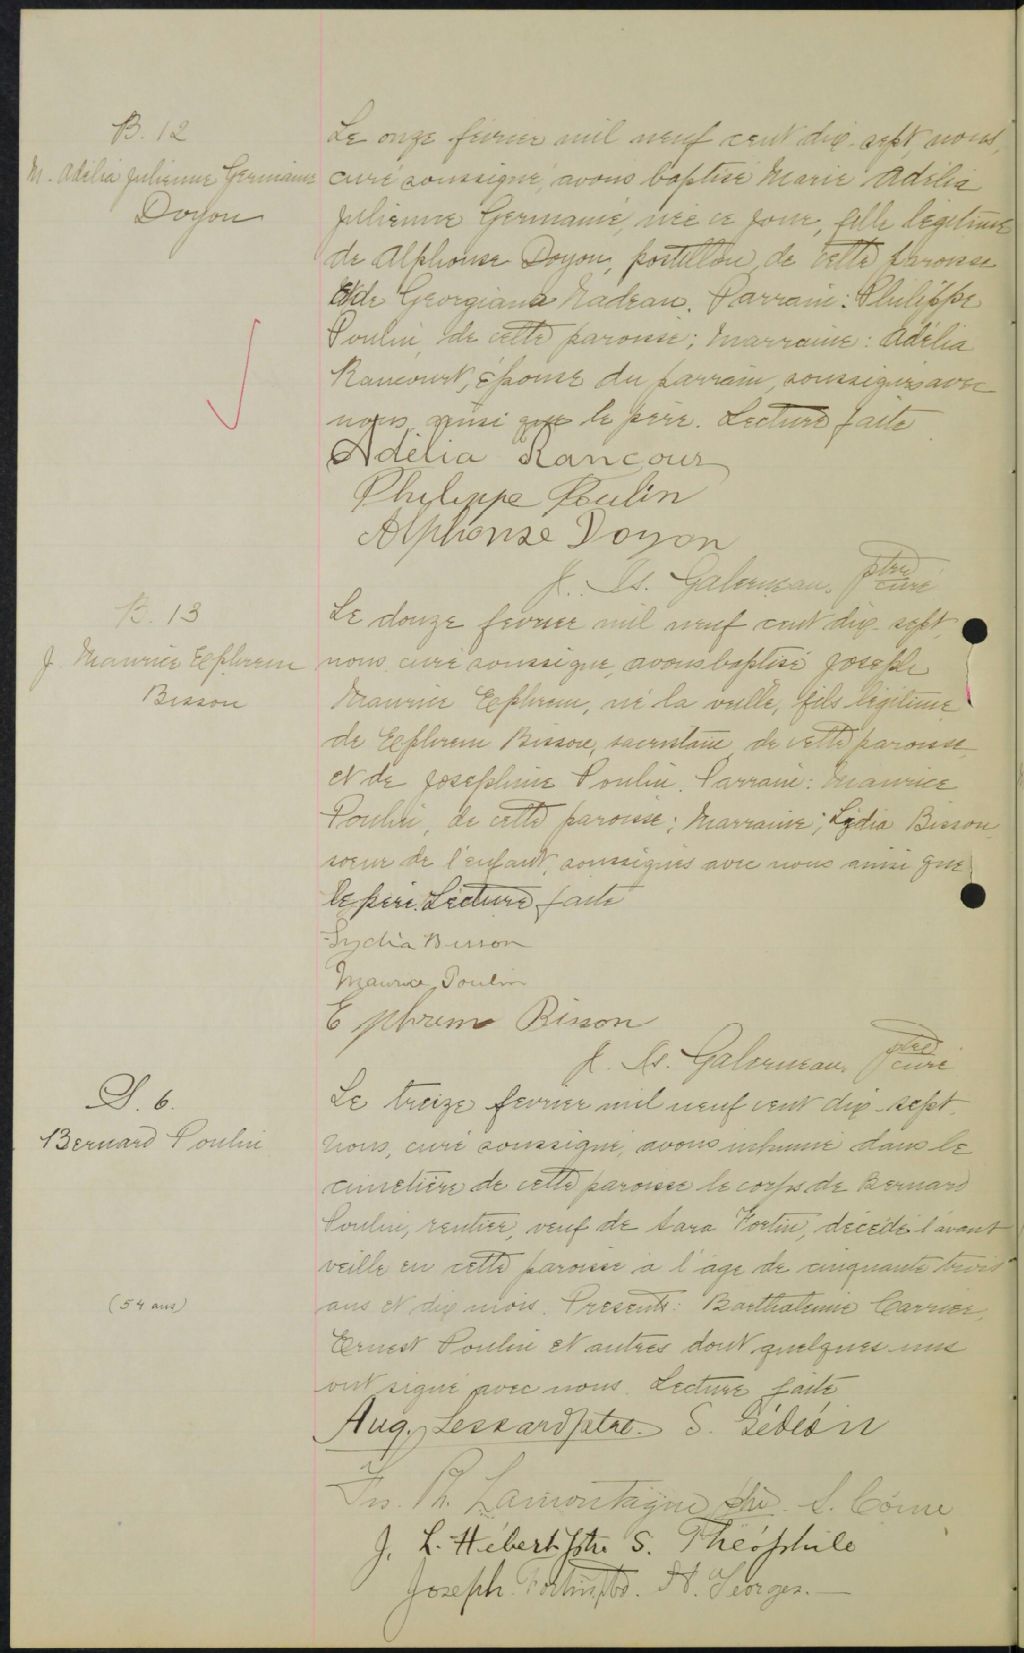 B. 12
M. Adélia Julienne Germaine
Doyon
Le onze février mil neuf cent dix-sept, nous,
curé soussigné, avons baptisé Marie Adélia
Julienne Germaine, née ce jour, fille légitime
de Alphonse Doyon, postillon, de cette paroisse
et de Georgiana Nadeau. Parrain: Philippe
Poulin, de cette paroisse; Marraine: Adélia
Rancourt, épouse du parrain, soussignés avec
nous, ainsi que le père. Lecture faite
Adélia Rancour
Philippe Poulin
Alphonse Doyon
J. Galerneau, ptre curé
B. 13
J. Maurice Ephrem
Bisson
Le douze février mil neuf cent dix-sept,
nous, curé soussigné, avons baptisé Joseph
Maurice Ephrem, né la veille, fils légitime
de Ephrem Bisson, sacristain, de cette paroisse
et de Joséphine Poulin. Parrain: Maurice
Poulin, de cette paroisse; Marraine; Lydia Bisson,
soeur de l'enfant, soussignés avec nous ainsi que
le père. Lecture faite
Lydia Bisson
Maurice Poulin
Ephrem Bisson
J. Galerneau, ptre curé
S. 6.
Bernard Poulin
(54 ans)
Le treize février mil neuf cent dix-sept,
nous, curé soussigné, avons inhumé dans le
cimetière de cette paroisse le corps de Bernard
Poulin, rentier, veuf de Sara Fortin, décédé l'avant
veille en cette paroisse à l'âge de cinquante trois
ans et dix mois. Présents: Barthélemie Carrier,
Ernest Poulin et autres dont quelques uns
ont signé avec nous. Lecture faite
Aug. Lessard ptre. S. Gédéon
Ph. Lamontagne ptre. S. Côme
J. L. Hébert Ptre S. Théophile
Joseph Fortin, ptre. St. Georges.